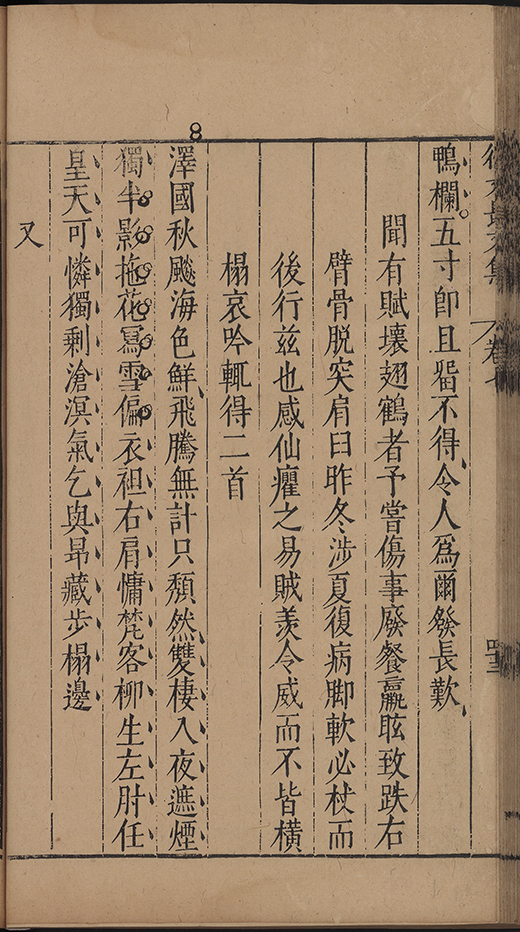 徐文長文集　卷七　四三
鴨欄五寸卽且畱不得令人爲爾發長歎
聞有賦壞翅鶴者予嘗傷事廢餐羸眩致跌右
臂骨脫突肩臼昨冬涉夏復病脚軟必杖而
後行茲也感仙癯之易賊羨令威而不皆橫
榻哀吟輒得二首
澤國秋飈海色鮮飛騰無計只頹然雙棲入夜遮煙
獨半影拖花冩雪偏衣袒右肩慵梵客柳生左肘任
皇天可憐獨剩滄溟氣乞與昻藏步榻邊
又